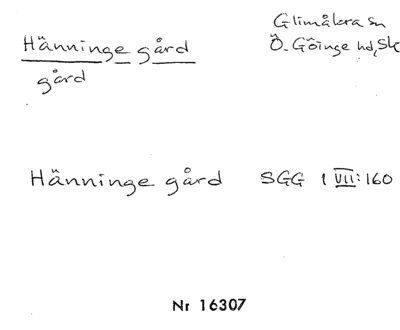 Hänninge gård
gård
Glimåkra sn
Ö. Göinge hd, Sk
Hänninge gård SGG 1 VII:160
Nr 16307